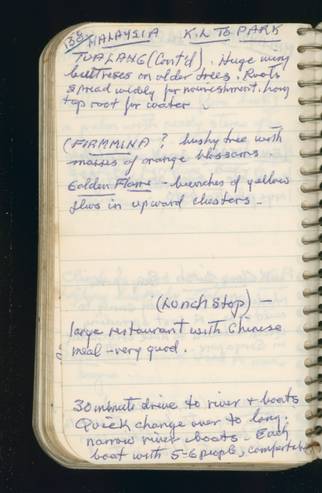 138/ MALAYSIA K.L TO PARK
TUALANG (Cont'd). Huge wing
buttresses on older trees. Roots
spread widely for nourishment. Long
tap root for water
? bushy tree with
masses of orange blossoms.
Golden Flame - bunches of yellow
flws in upward clusters -
(Lunch Stop) -
large restaurant with Chinese
meal - very good.
30 minute drive to river + boats
Quick change over to long,
narrow river boats - Each
boat with 5-6 people, comfortable